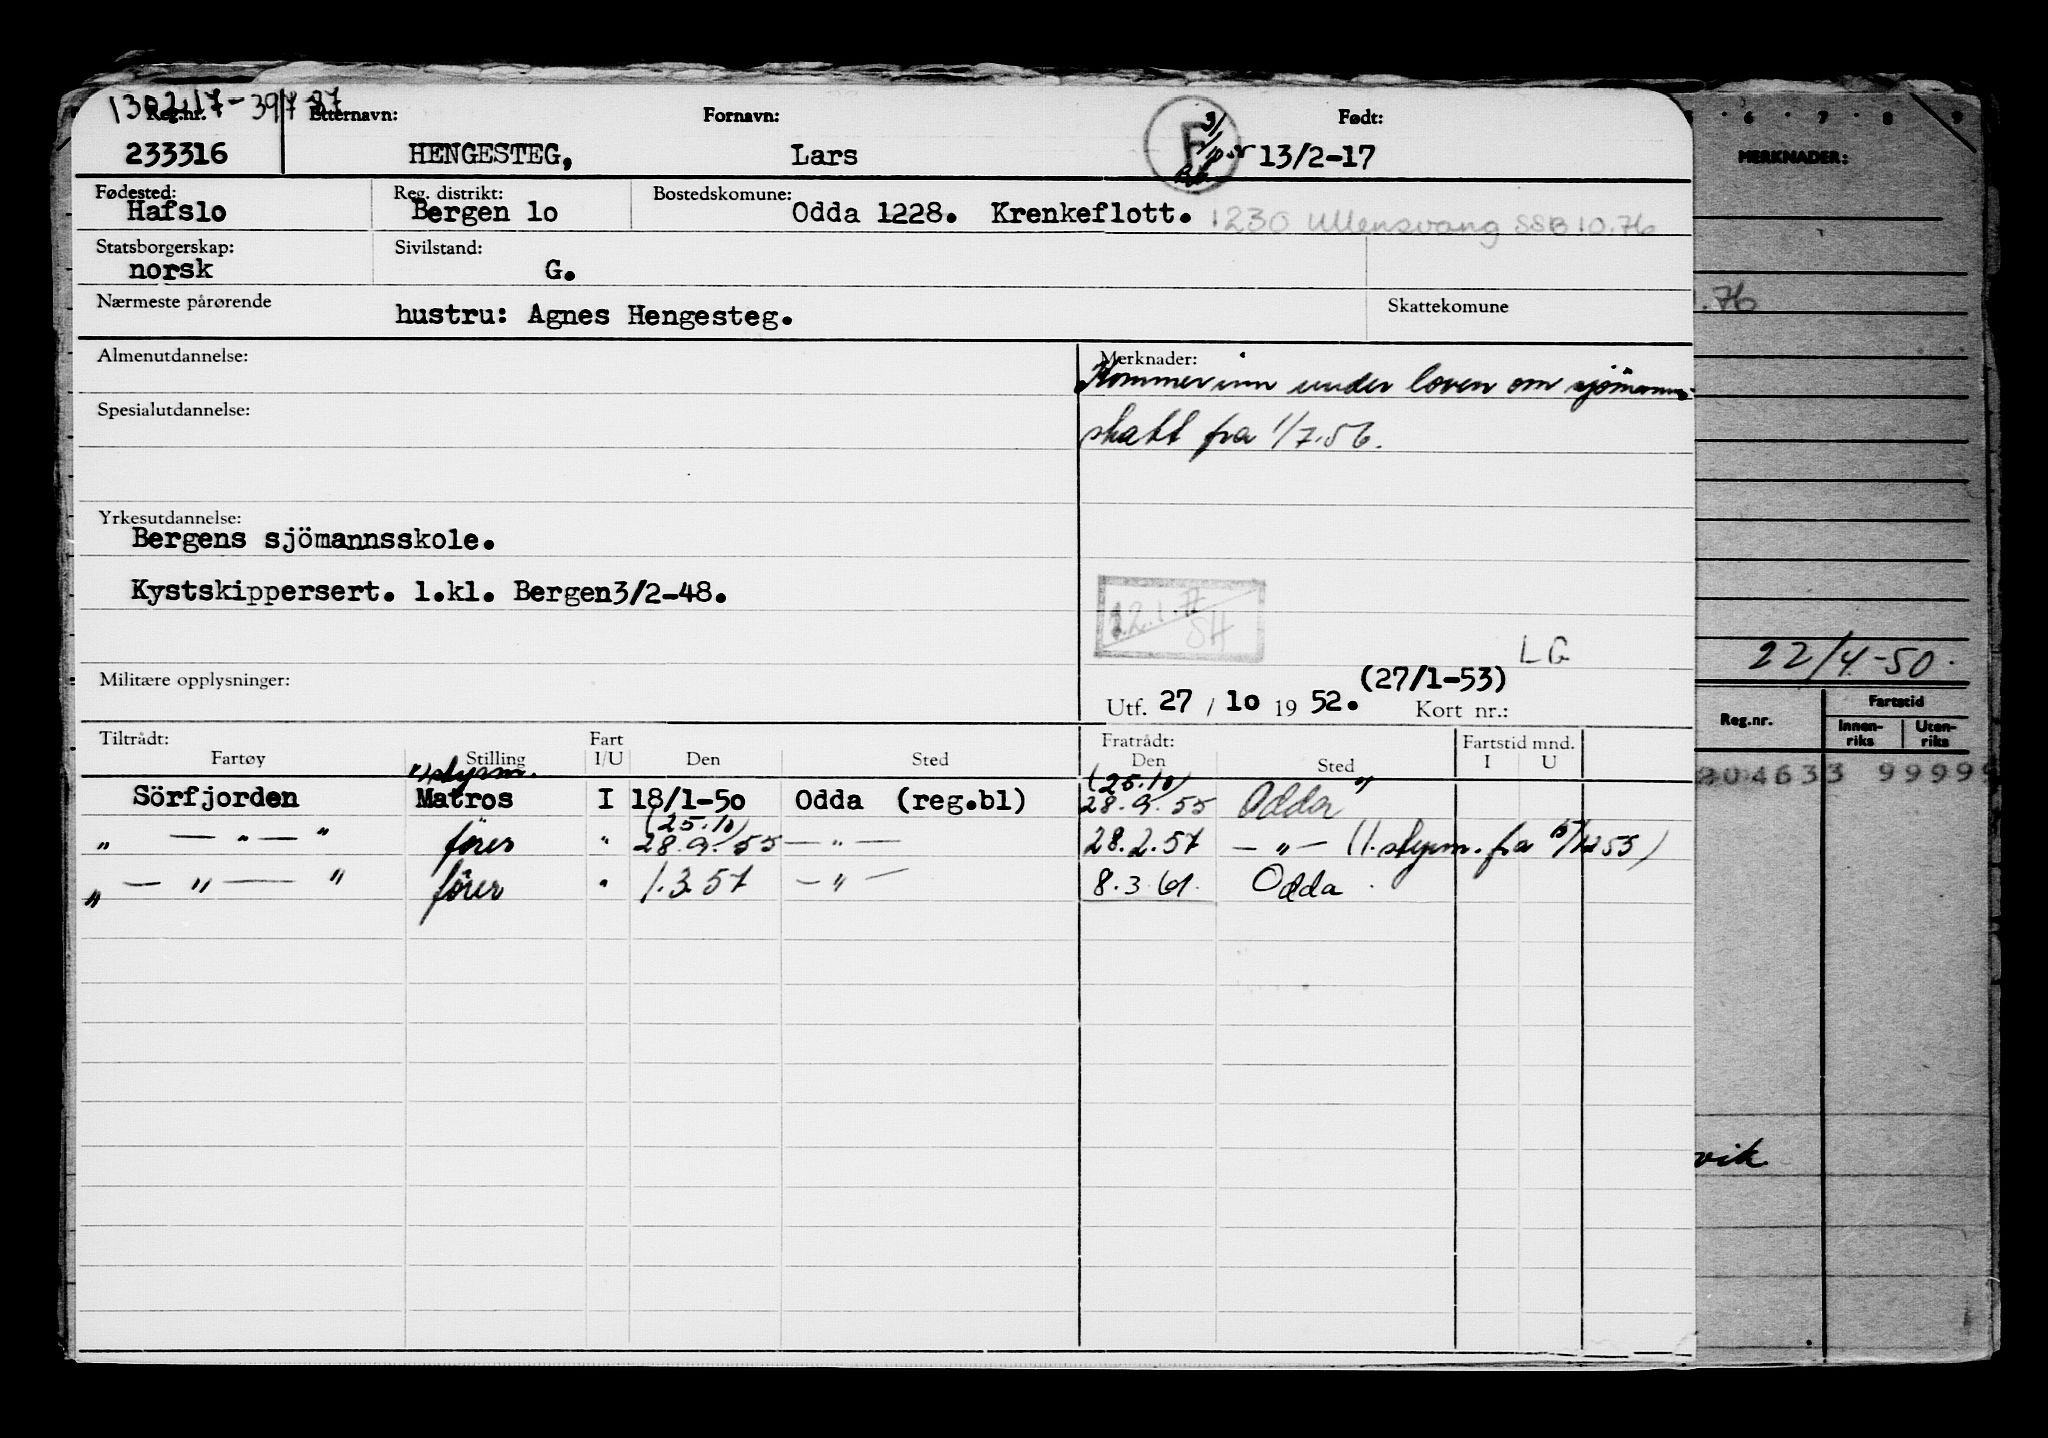 130217-39787
Reg.nr. Etternavn: Fornavn: Født:
233316 HENGESTEG, Lars F 13/2-17
Fødested: Reg. distrikt: Bostedskomune:
Hafslo Bergen lo Odda 1228. Krenkeflott. 1230 Ullensvang SSB 10.76
Statsborgerskap: Sivilstand:
norsk G.
Nærmeste pårørende Skattekomune
hustru: Agnes Hengesteg.
Almenutdannelse: Merknader:
Kommer inn under loven om sjömanns-
Spesialutdannelse:
skatt fra 1/7.56.
Yrkesutdannelse:
Bergens sjömannsskole.
Kystskippersert. 1.kl. Bergen3/2-48.
12.1.77
SH
LG
Militære opplysninger: (27/1-53)
Utf. 27 / 1o 19 52. Kort nr.:
Tiltrådt: Fart Fratrådt: Fartstid mnd.
Fartøy Stilling I/U Den Sted Den Sted I U
styrm. (25.10)
Sörfjorden Matros I 18/1-5o Odda (reg.bl) 28.9.55 Odda "
(25.10)
" — " — " förer " 28.9.55 — " — 28.2.57 — " — (1. styrm. fra 55)
" — " — " förer " 1.3.57 — " — 8.3.61. Odda
6 7 8 9
MERKNADER:
.76
22/4-50.
Reg.nr. Fartstid
Innen-riks Uten-riks
204633 99999
vik